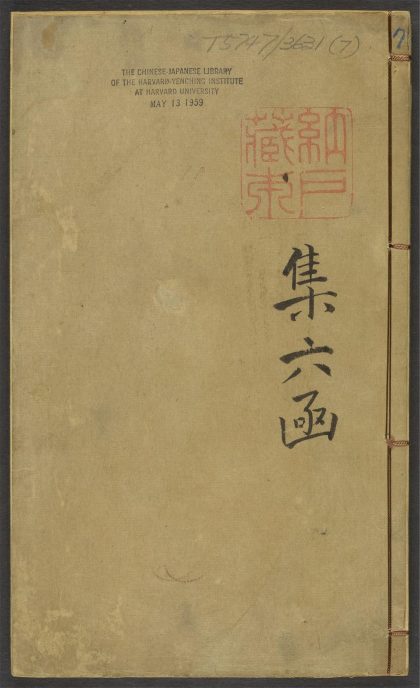 T5747/3631(7)
7
THE CHINESE-JAPANESE LIBRARY
OF THE HARVARD-YENCHING INSTITUTE
AT HARVARD UNIVERSITY
MAY 13 1959
集六函